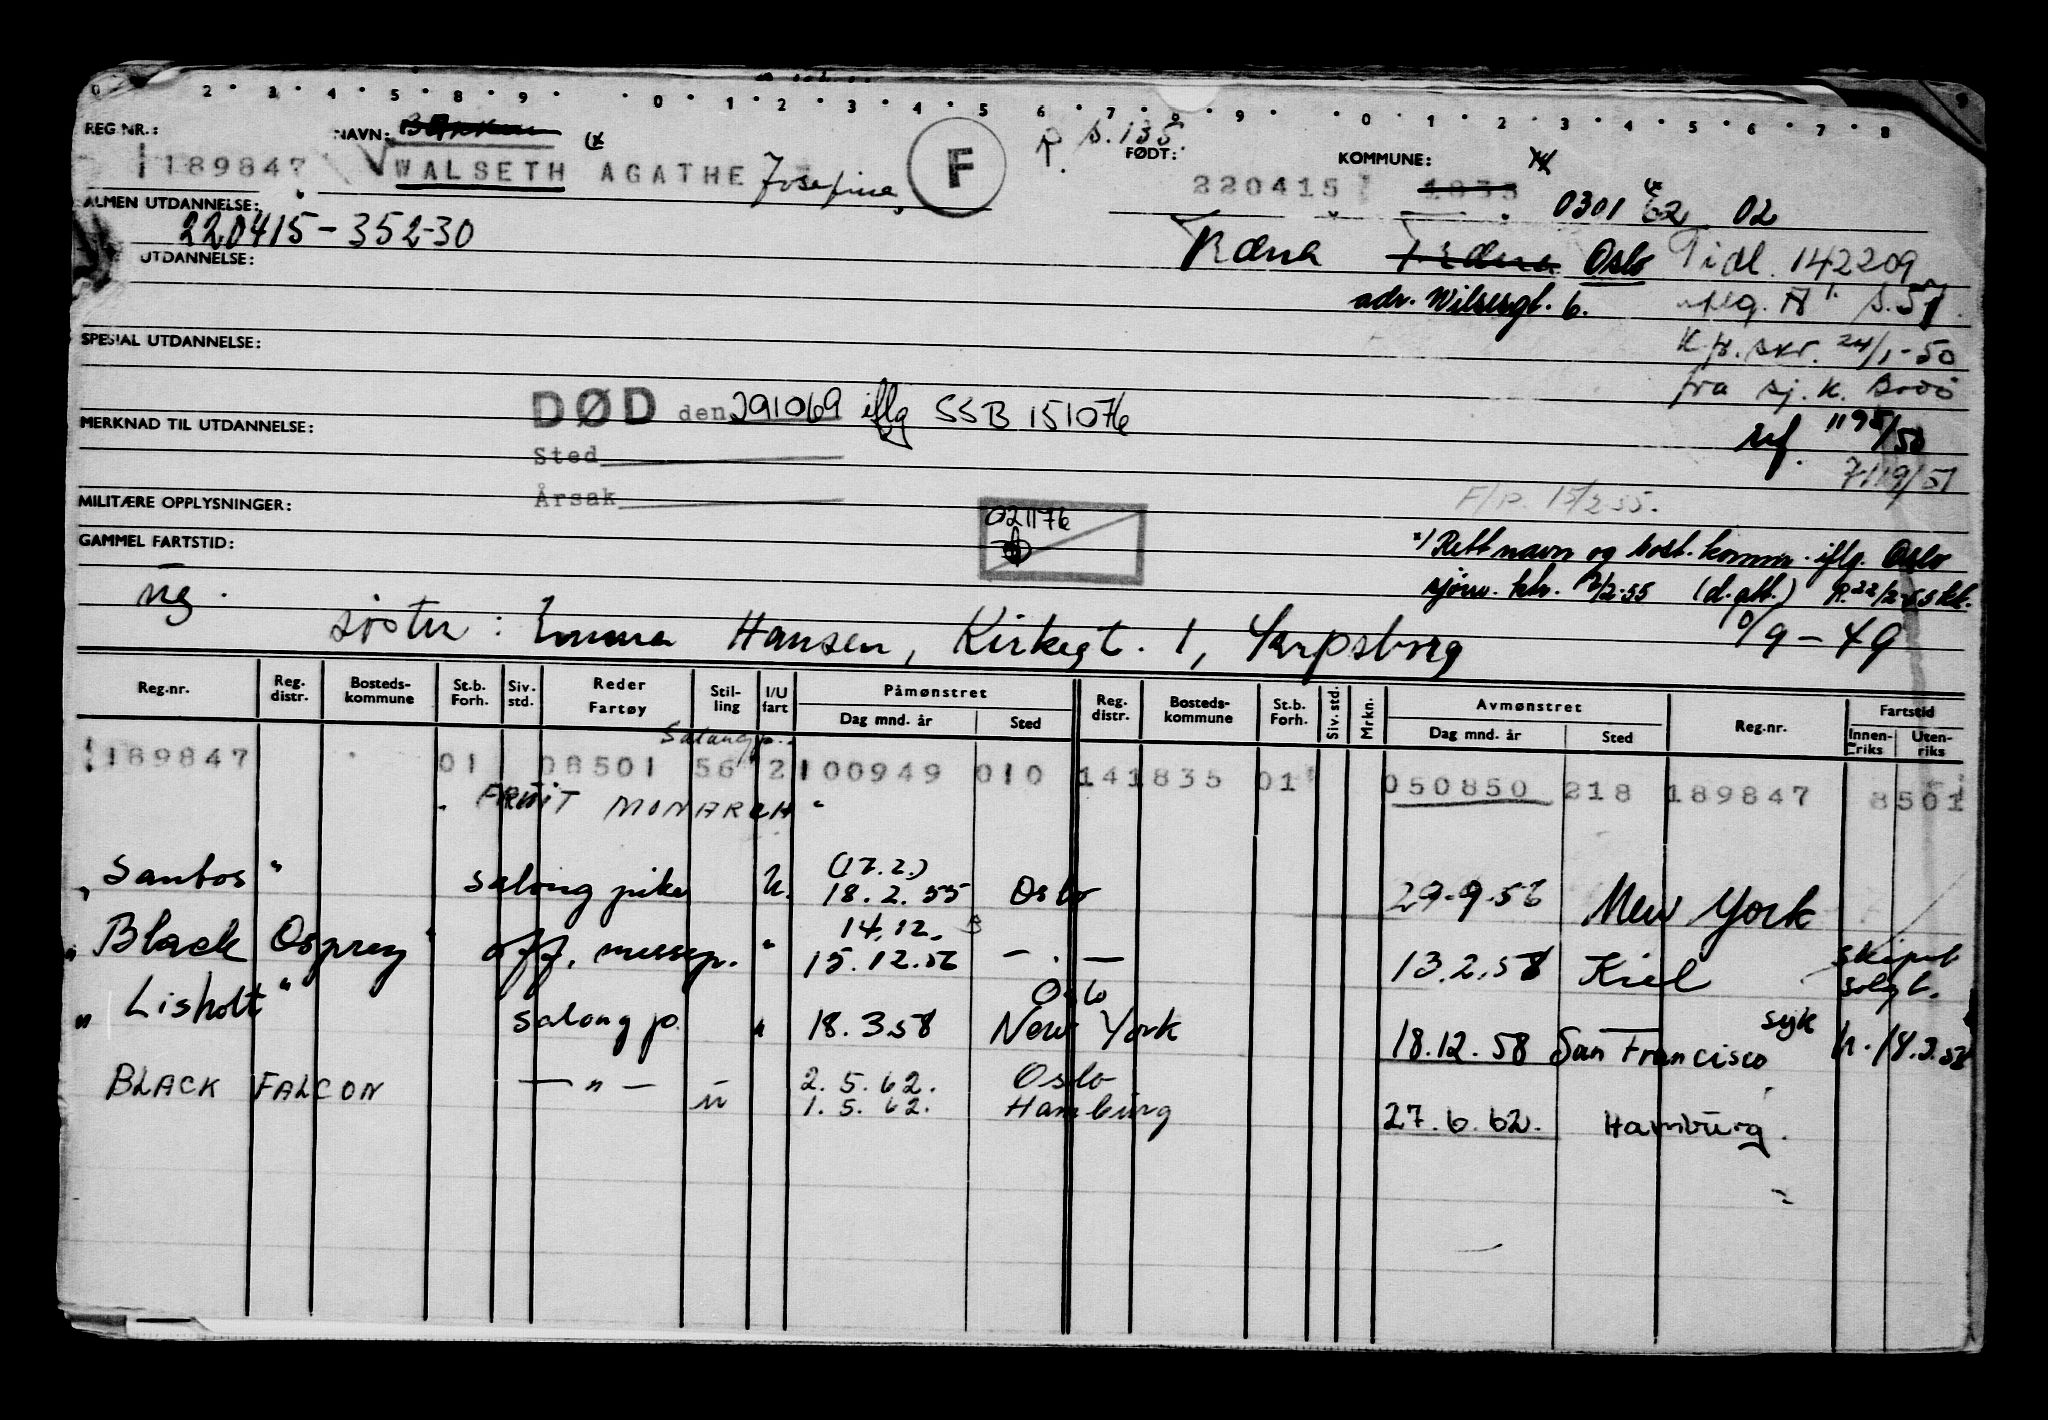 0 2 3 4 5 8 9 0 1 2 3 4 5 6 7 8 9 0 1 2 3 4 5 6 7 8
REG NR.: NAVN: (x S. 135. FØDT: KOMMUNE:
189847 WALSETH AGATHE Josefine, F 220415 1835 0301 02
ALMEN UTDANNELSE:
220415-352-30 Træna Træna Oslo Tidl. 142209
UTDANNELSE: adr. Wilsesgt. 6. iflg. S. 57.
SPESIAL UTDANNELSE: skr. 24/1-50
fra sj. k. Bodø
DØD den 291069 iflg SSB 151076
MERKNAD TIL UTDANNELSE: 1195/50
Sted 7119/51
Årsak F/P. 15/2 55.
MILITÆRE OPPLYSNINGER: 021176
GAMMEL FARTSTID: x/ Rett navn og bost. komm. iflg. Oslo
ug. sjøm. ktr. /2-55 (d. att.)
søster: Emma Hansen, Kirkegt. 1, Sarpsborg 10/9-49
Reg.nr. Reg. distr. Bosteds-kommune St.b. Forh. Siv. std. Reder Fartøy Stil-ling I/U fart Påmønstret Dag mnd. år Sted Reg. distr. Bosteds-kommune St.b. Forh. Siv. std. Mrkn. Avmønstret Dag mnd. år Sted Reg.nr. Fartstid Innen-riks Uten-riks
Salongp.
189847 01 08501 56 2 100949 010 141835 01 050850 218 189847 8501
"FRUIT MONARCH"
(17.2.)
"Santos" salong pike u. 18.2.55 Oslo 29.9.56 New York
14.12.
"Black Osprey" off. messep. " 15.12.56 — . — 13.2.58 Kiel skipet solgt.
Oslo
"Lisholt" salong p. " 18.3.58 New York 18.12.58 San Francisco syk h. 18.3.58
BLACK FALCON — " — u 2.5.62. Oslo
1.5.62. Hamburg 27.6.62. Hamburg.